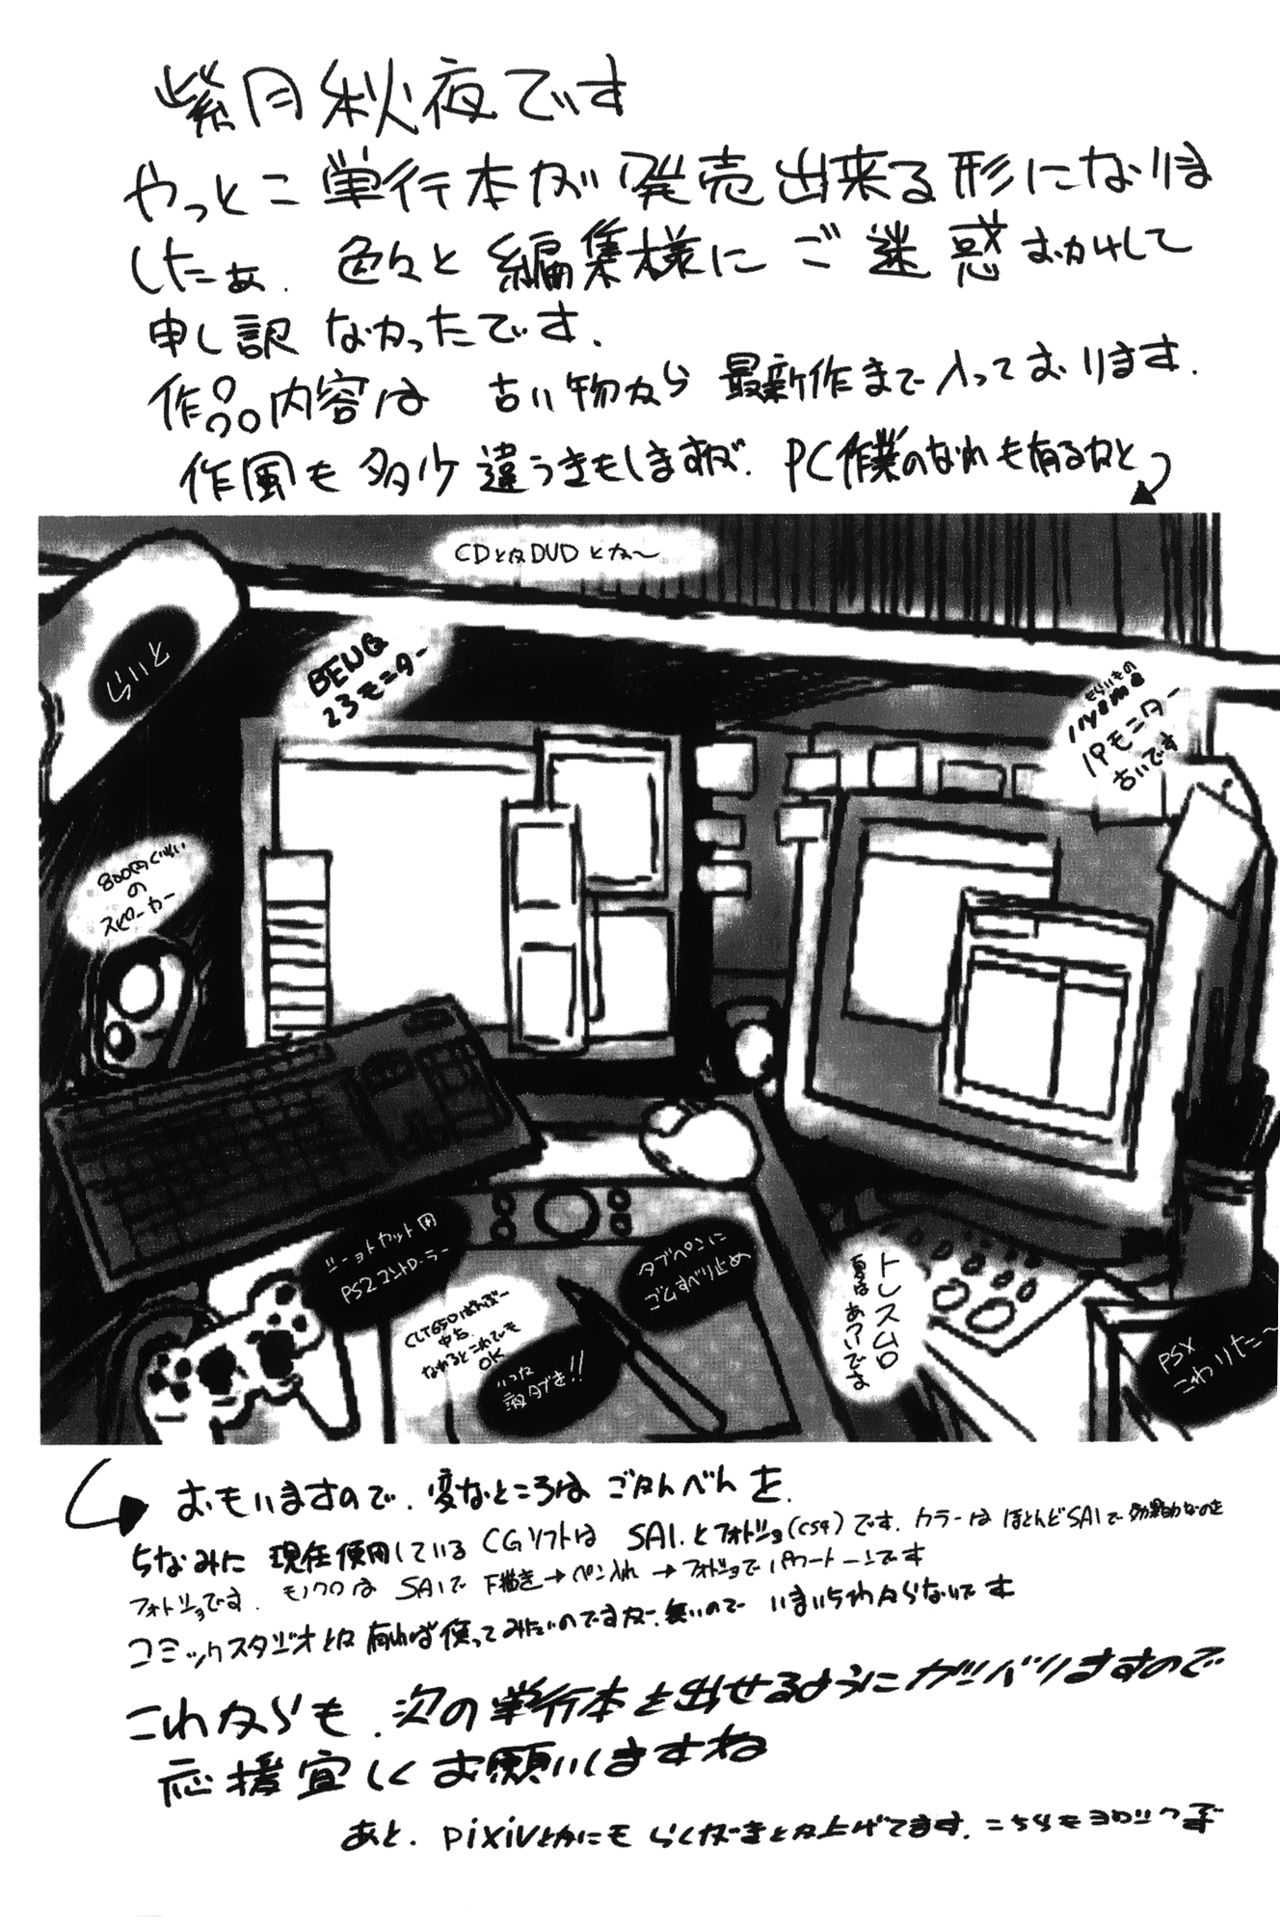 紫月秋夜です
やっとこ単行本が発売出来る形になりま
したぁ. 色々と編集様にご迷惑おかけして
申し訳なかったです.
作品内容は古い物から最新作まで入っております.
作風も多少違うきもしますが. PC作業のなれも有るかと
CDとかDVDとか〜
らいと
BENQ
23モニター
もらいもの
iiyama
19モニター
古いです
800円くらい
の
スピーカー
ショートカット用
PS2コントローラー
タブペンに
ゴムすべり止め
CLT650ばんぶー
中古
なれるとこれでも
OK
いつか
液タブを!!
トレス台
夏はあついです
PSX
こわりた〜
おもいますので. 変なところはごかんべんを.
ちなみに現在使用しているCGソフトはSAI.とフォトショ(CS4)です. カラーはほとんどSAIで効果的なのを
フォトショです. モノクロはSAIで下描き→ペン入れ→フォトショでパワートーンです
コミックスタジオとか有れば使ってみたいのですが.無いのでいまいちわからないです
これからも.次の単行本を出せるようにガンバりますので
応援宜しくお願いしますね
あと. pixivとかにもらくがきとか上げてます. こちらもヨロシクっす